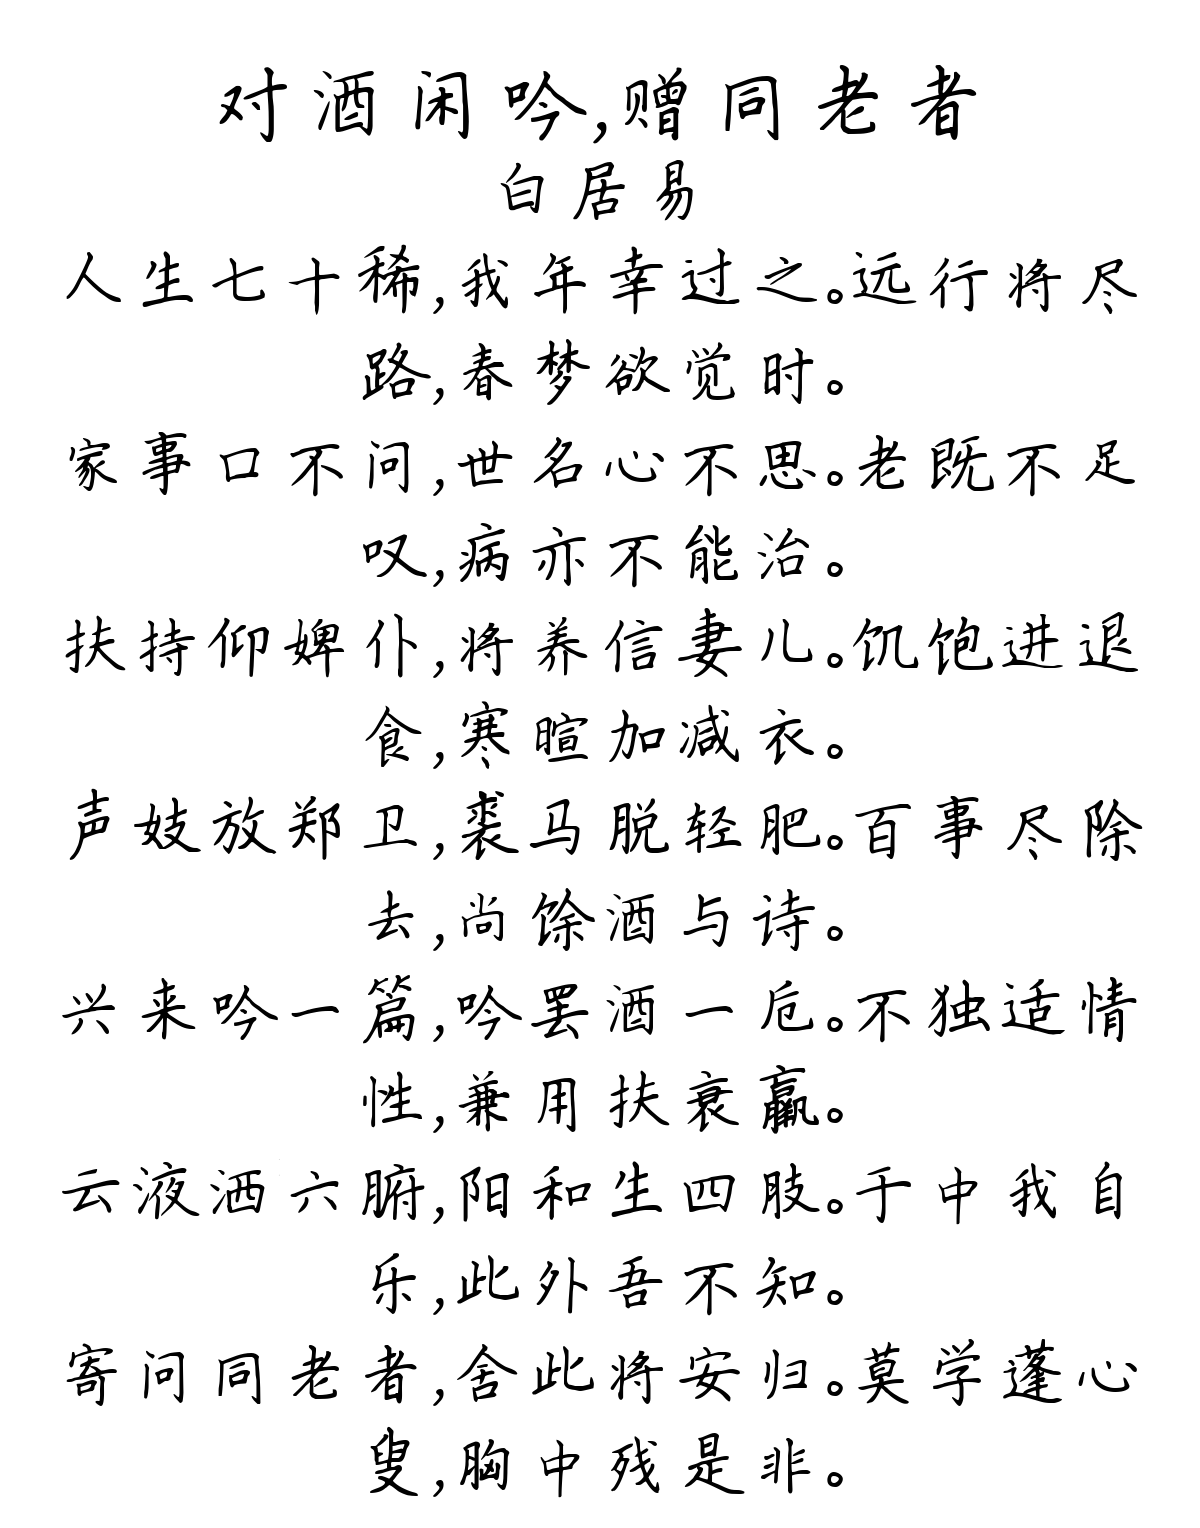 对酒闲吟,赠同老者
白居易
人生七十稀,我年幸过之。远行将尽
路,春梦欲觉时。
家事口不问,世名心不思。老既不足
叹,病亦不能治。
扶持仰婢仆,将养信妻儿。饥饱进退
食,寒暄加减衣。
声妓放郑卫,裘马脱轻肥。百事尽除
去,尚馀酒与诗。
兴来吟一篇,吟罢酒一卮。不独适情
性,兼用扶衰羸。
云液洒六腑,阳和生四肢。于中我自
乐,此外吾不知。
寄问同老者,舍此将安归。莫学蓬心
叟,胸中残是非。